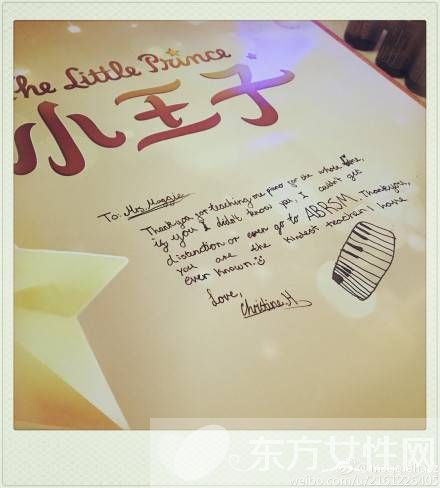 The Little Prince
小王子
To: Mrs. Maggie
Thank you for teaching me piano for the whole time,
if you I didn't know you, I couldn't get
distinction or even go to ABRSM. Thank you,
you are the kindest teacher I have
ever known.
Love,
Christine.H
东方女性网
weibo.com/u/2161226405